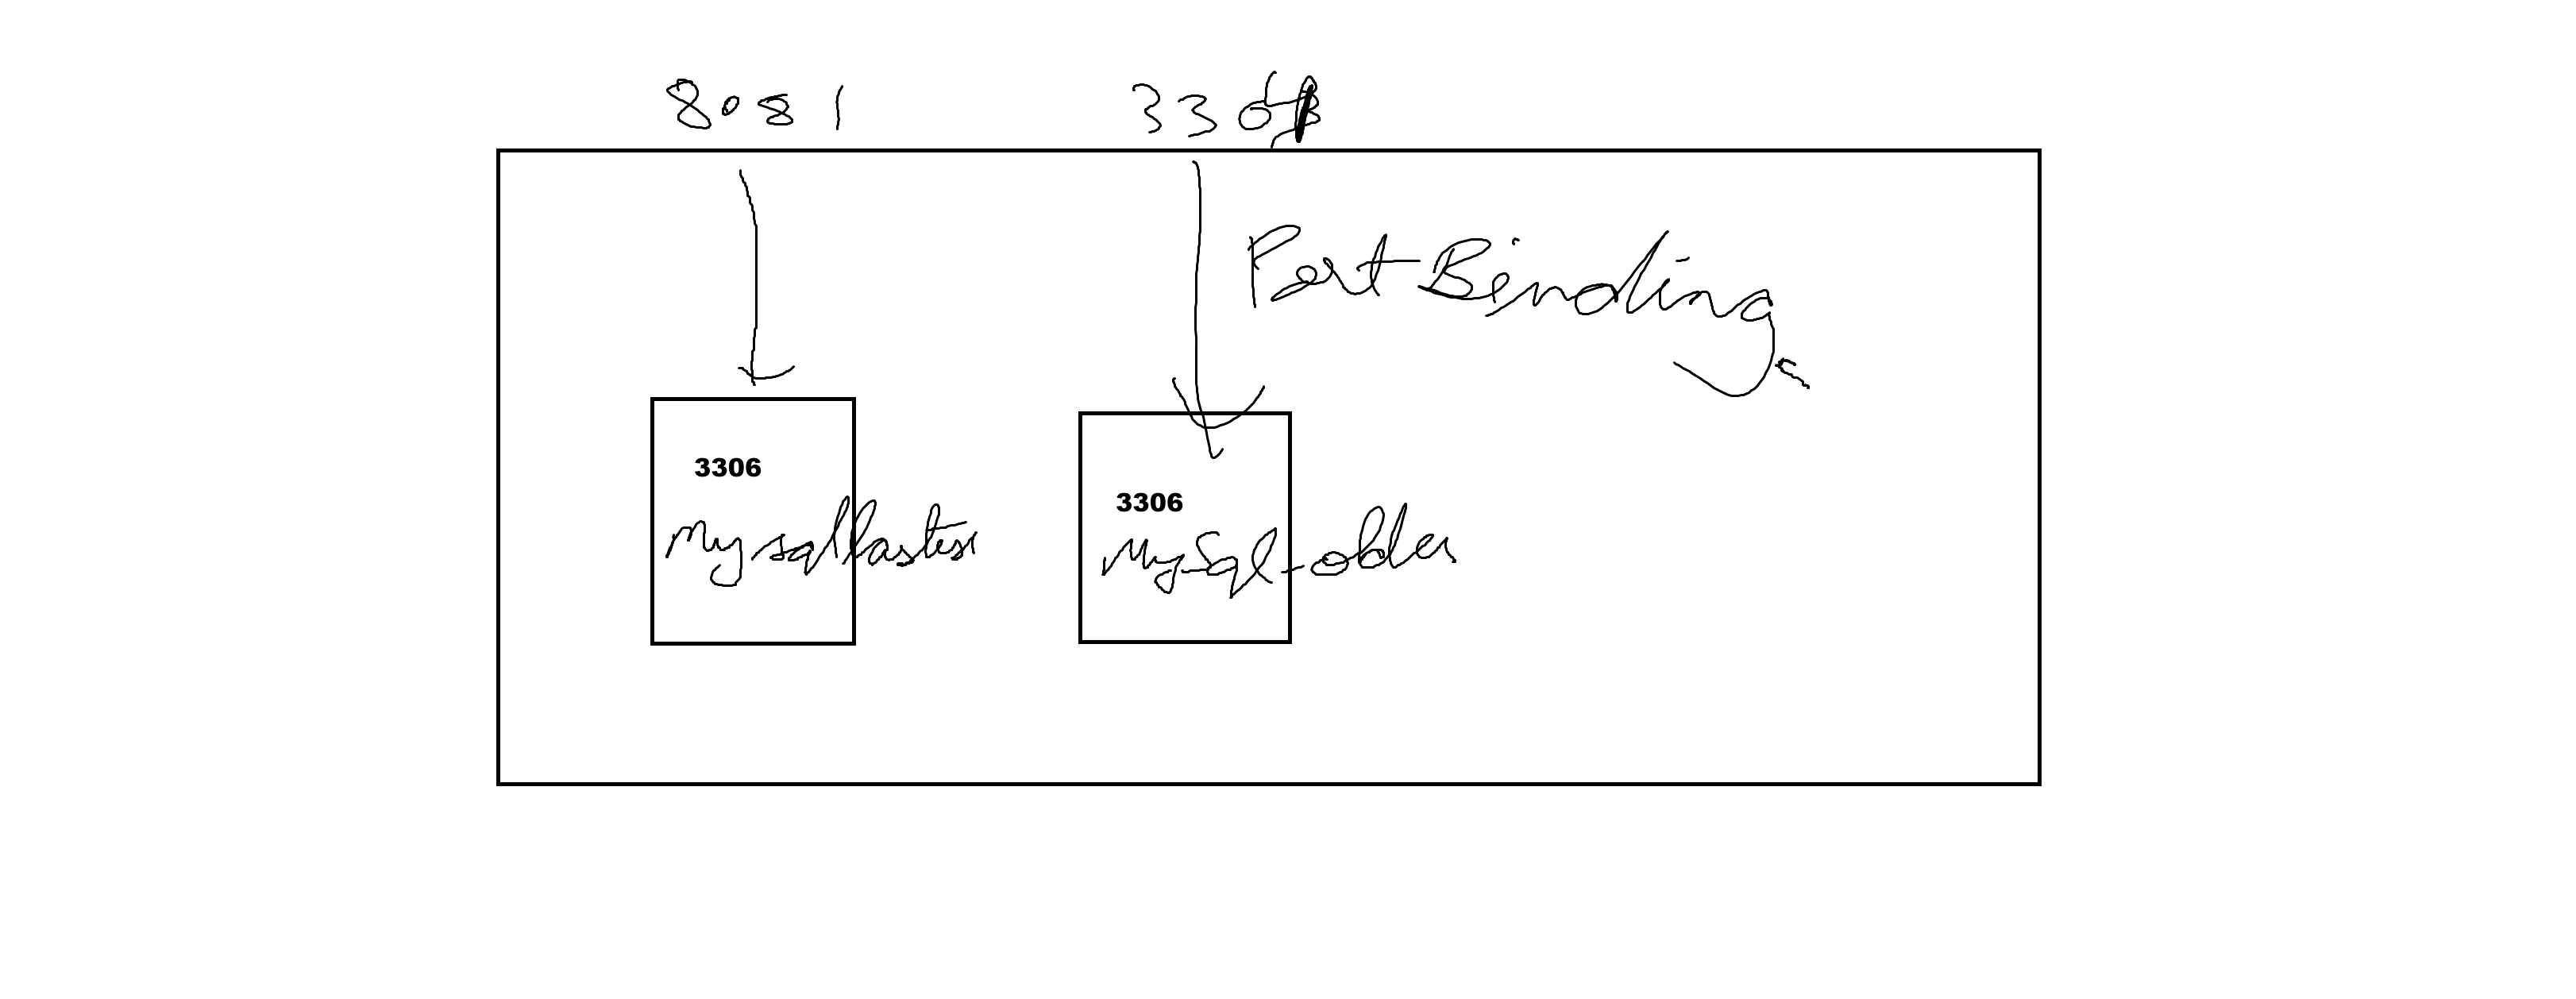 8081
Port Binding
3306
mysqllastest
3306
MySql-older